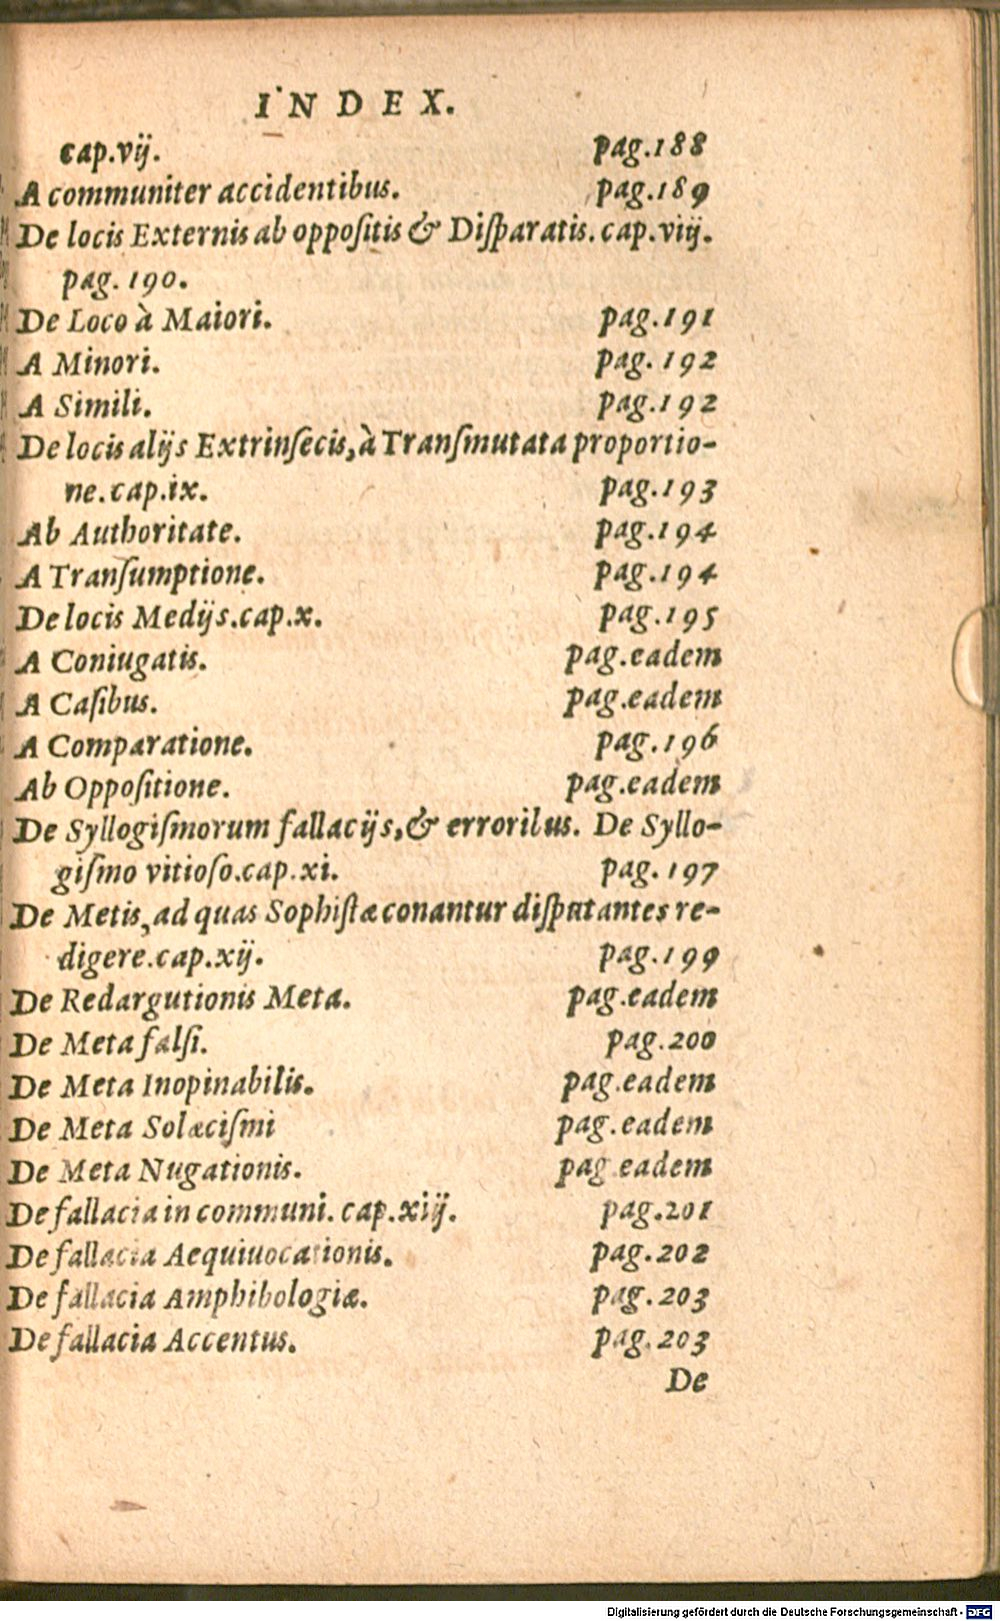 INDEX.
cap.vij. pag.188
A communiter accidentibus. pag.189
De locis Externis ab oppoſitis & Diſparatis. cap.viij.
pag. 190.
De Loco à Maiori. pag.191
A Minori. pag. 192
A Simili. pag.192
De locis alijs Extrinſecis, à Tranſmutata proportio-
ne. cap.ix. pag.193
Ab Authoritate. pag.194
A Tranſumptione. pag.194
De locis Medijs.cap.x. pag.195
A Coniugatis. pag.eadem
A Caſibus. pag.eadem
A Comparatione. pag.196
Ab Oppoſitione. pag.eadem
De Syllogiſmorum fallacijs, & erroribus. De Syllo-
giſmo vitioſo.cap.xi. pag.197
De Metis, ad quas Sophiſtæ conantur diſputantes re-
digere.cap.xij. pag.199
De Redargutionis Meta. pag.eadem
De Meta falſi. pag.200
De Meta Inopinabilis. pag.eadem
De Meta Solæciſmi pag.eadem
De Meta Nugationis. pag eadem
De fallacia in communi. cap.xiij. pag.201
De fallacia Aequiuocationis. pag.202
De fallacia Amphibologiæ. pag.203
De fallacia Accentus. pag.203
De
Digitalisierung gefördert durch die Deutsche Forschungsgemeinschaft - DFG